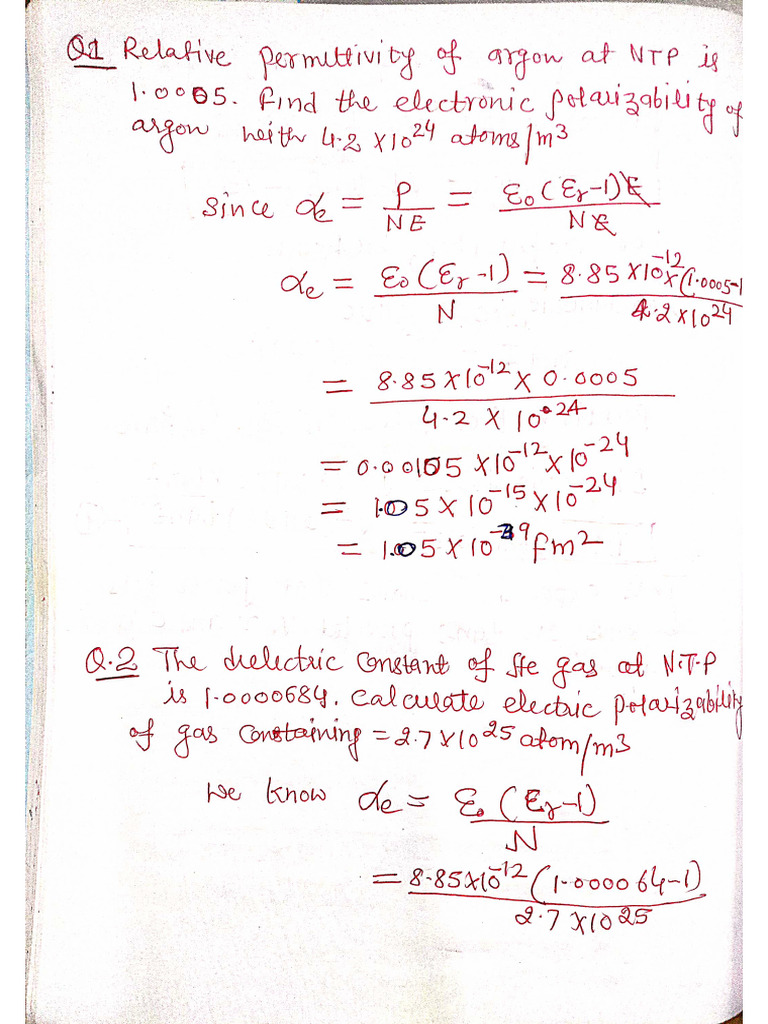 Q1 Relative permittivity of argon at NTP is
1.0005. Find the electronic polarizability of
argon with 4.2 X10²⁴ atoms/m³
since αe = P/NE = ε₀(εr-1)E/NE
αe = ε₀(εr-1)/N = 8.85 X10⁻¹²x(1.0005-1/4.2 X10²⁴
= 8.85 X10⁻¹² X 0.0005/4.2 X 10²⁴
= 0.00105 X10⁻¹² X10⁻²⁴
= 1.05 X 10⁻¹⁵ X10⁻²⁴
= 1.05 X 10⁻³⁹ fm²
Q.2 The dielectric constant of He gas at N.T.P
is 1.0000684. Calculate electric polarizability
of gas constaining = 2.7 X10²⁵ atom/m³
We know αe = ε₀(εr-1)/N
= 8.85X10⁻¹²(1.000064-1)/2.7 X10²⁵